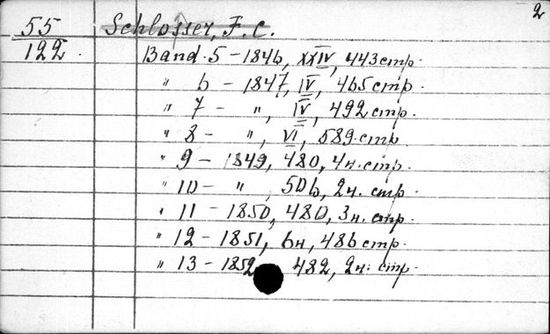 2
55 Schlosser, F. C.
122 Band 5 – 1846, XXIV, 443 стр.
" 6 – 1847, IV, 465 стр.
" 7 – ", IV, 492 стр.
" 8 – ", VI, 589 стр.
" 9 – 1849, 480, 4н. стр.
" 10 – ", 506, 2н. стр.
" 11 – 1850, 480, 3н. стр.
" 12 – 1851, 6н, 486 стр.
" 13 – 1852 482, 2н. стр.